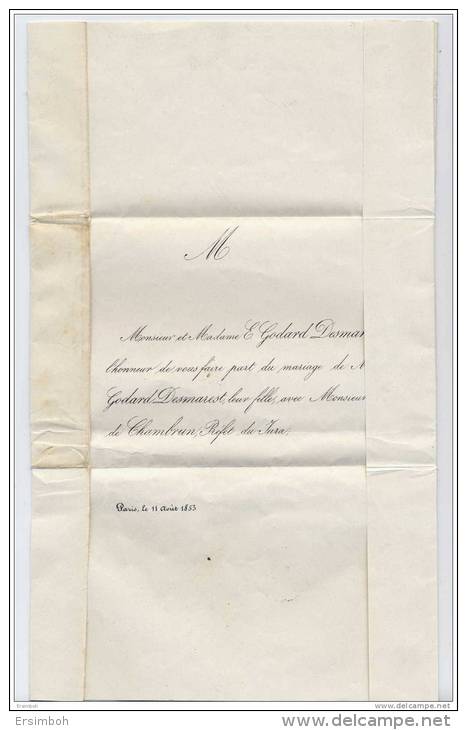 M
Monsieur et Madame E. Godard Desmar
l'honneur de vous faire part du mariage de M
Godard Desmarest, leur fille, avec Monsieur
de Chambrun, Préfet du Jura.
Paris, le 11 Août 1853
Ersimboh
www.delcampe.net
Ersimboh